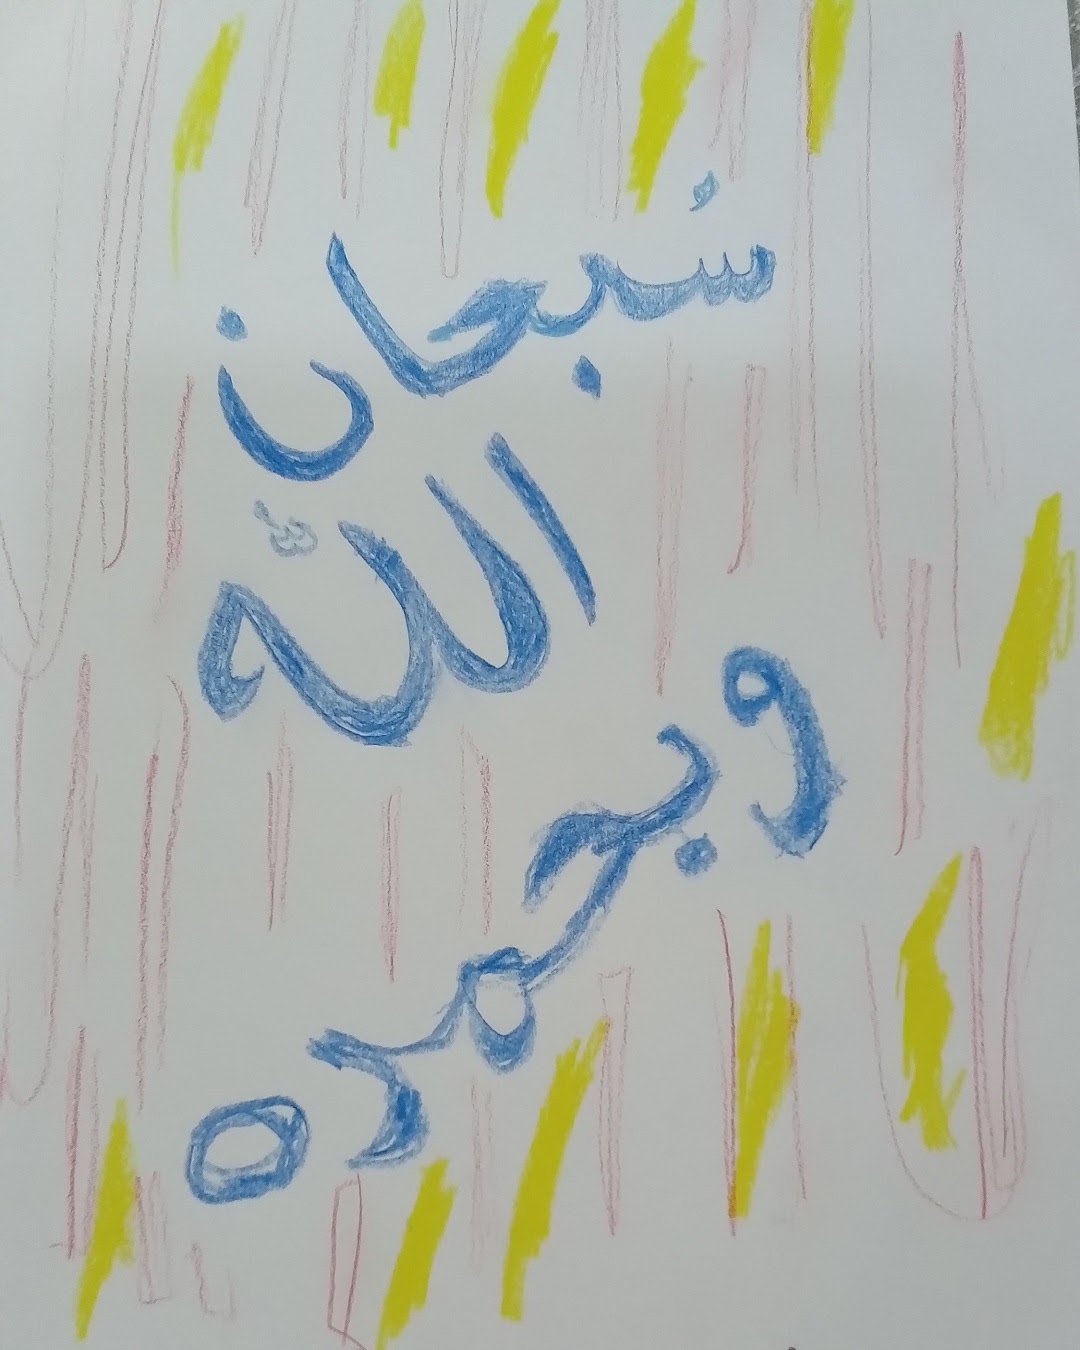 سُبحان
اللّه
وبحمده